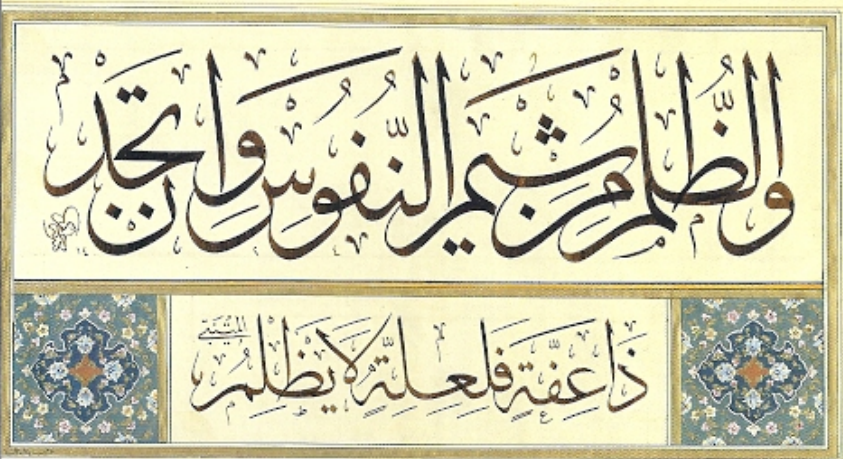 والظُّلمُ مِن شِيَمِ النُّفُوسِ وَإن تَجِدْ
ذَا عِفَّةٍ فَلِعِلَّةٍ لَا يَظْلِمُ
المتنبي